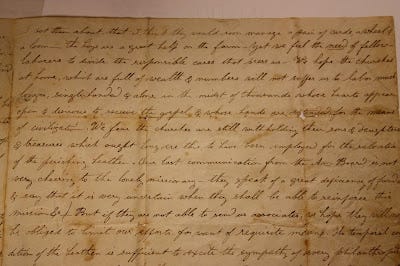 not then about, that I think they would soon manage a pair of cards, a wheel &
a loom— the boys are a great help on the farm. Yet we feel the need of fellow
laborers to divide the responsible cares that press us. We hope the churches
at home, which are full of wealth & numbers will not suffer us to labor much
longer, single handed & alone in the midst of thousands whose hearts appear
open & desirous to receive the gospel & whose hands are for the means
of civilization. We fear the churches are still withholding their sons & daughters
& treasures which ought long ere this to have been employed for the salvation
of the perishing heathen. Our last communication from the Am. Board is not
very cheering to the lonely missionary— they speak of a great deficiency of funds
& say that it is very uncertain when they shall be able to reinforce this
mission &c. But if they are not able to send us associates, we hope they will not
be obliged to limit our efforts for want of requisite means. The temporal con
dition of the heathen is sufficient to excite the sympathy of every philanthropist